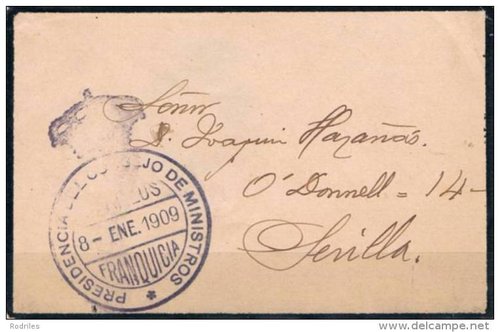 Señor
D. Joaquin Hazañas.
O'Donnell = 14-
Sevilla.
PRESIDENCIA DEL CONSEJO DE MINISTROS
8- ENE. 1909
FRANQUICIA
Rodriles
www.delcampe.net